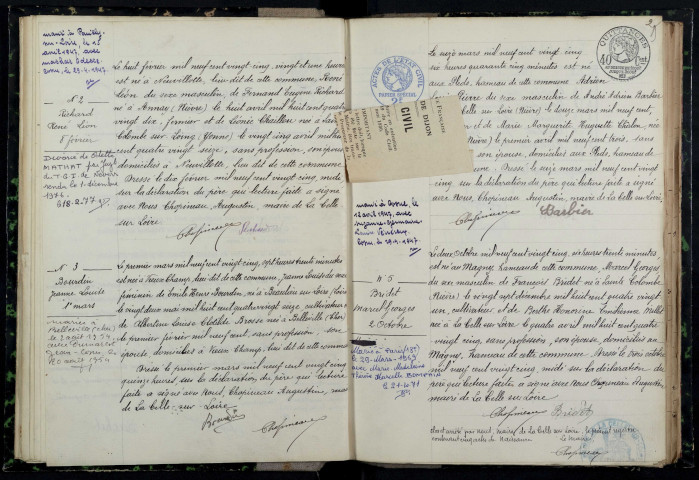 marié à Pouilly-
sur-Loire, le 15
avril 1947, avec
N° 2
Richard
René Léon
8 février
Divorce de
MATHAT par Jugt
du T.G.I. de Nevers
rendu le 1 décembre
1976.
Le huit février mil neuf cent vingt cinq, vingt et une heures
est né à Neuvillotte, lieu dit de cette commune, René
Léon du sexe masculin, de Fernand Eugène Richard
né à Annay (Nièvre) le huit avril mil huit cent quatre
vingt dix, fermier et de Léonie Chaillou née à
le vingt cinq avril mil huit
cent quatre vingt seize, sans profession, son épouse
domiciliés à Neuvillotte, lieu dit de cette commune
Dressé le dix février mil neuf cent vingt cinq, midi
sur la déclaration du père qui lecture faite a signé
avec Nous Chopineau Augustin, maire de la Celle
sur Loire
Chopineau
N° 3
Bourdin
Jeanne Louise
1er mars
Mariée à
Belleville (Cher)
le 7 août 1954
avec
Le premier mars mil neuf cent vingt cinq, sept heures trente minutes
est née à Vieux Champ, lieu dit de cette commune, Jeanne Louise du sexe
féminin de Emile Henri Bourdin, né à Beaulieu sur Loire (Loiret)
le vingt deux mai mil huit cent quatre vingt onze cultivateur et
de Albertine Louise Clotilde Brosse née à Belleville (Cher)
le premier février mil neuf cent, sans profession, son
épouse, domiciliés à Vieux Champ, lieu dit de cette commune
Dressé le premier mars mil neuf cent vingt cinq
quinze heures, sur la déclaration du père, qui lecture
faite a signé avec Nous, Chopineau Augustin, maire
de la Celle sur Loire
Bourdin
Chopineau
ACTES DE L'ETAT CIVIL
PAPIER SPECIAL
DE DIJON
CIVIL
marié à Cosne, le
12 avril 1947, avec
Suzanne Germaine
Le onze mars mil neuf cent vingt cinq
six heures quarante cinq minutes est né
aux Pleds, hameau de cette commune Adrien
du sexe masculin de André Adrien Barbier
Celle sur Loire (Nièvre) le douze mars mil neuf cent,
et de Marie Marguerite Huguette Chalon, née
(Nièvre) le premier avril mil neuf cent trois, sans
son épouse, domiciliés aux Pleds, hameau de
cette commune. Dressé le onze mars mil neuf cent
vingt cinq
sur la déclaration du père qui lecture faite a signé
avec Nous Chopineau Augustin, maire de la Celle sur Loire
Chopineau Barbier
N° 5
Bridet
Marcel Georges
2 Octobre
Marié à Paris
le 29 Mars 1963
avec Marie Madeleine
Le deux Octobre mil neuf cent vingt cinq, six heures trente minutes
est né au Magny, hameau de cette commune, Marcel Georges
du sexe masculin de François Bridet né à Sainte Colombe
(Nièvre) le vingt sept décembre mil huit cent quatre vingt
un, cultivateur et de Berthe Honorine Constance Millet
née à la Celle sur Loire le quatre avril mil huit cent quatre
vingt cinq, sans profession, son épouse, domiciliés au
Magny, hameau de cette commune. Dressé le trois octobre
mil neuf cent vingt cinq, midi sur la déclaration du
père qui lecture faite a signé avec Nous Chopineau Augustin
maire de la Celle sur Loire
Chopineau Bridet
Clos et arrêté par nous, maire de la Celle sur Loire, le présent registre
contenant cinq actes de Naissance
Le Maire
Chopineau